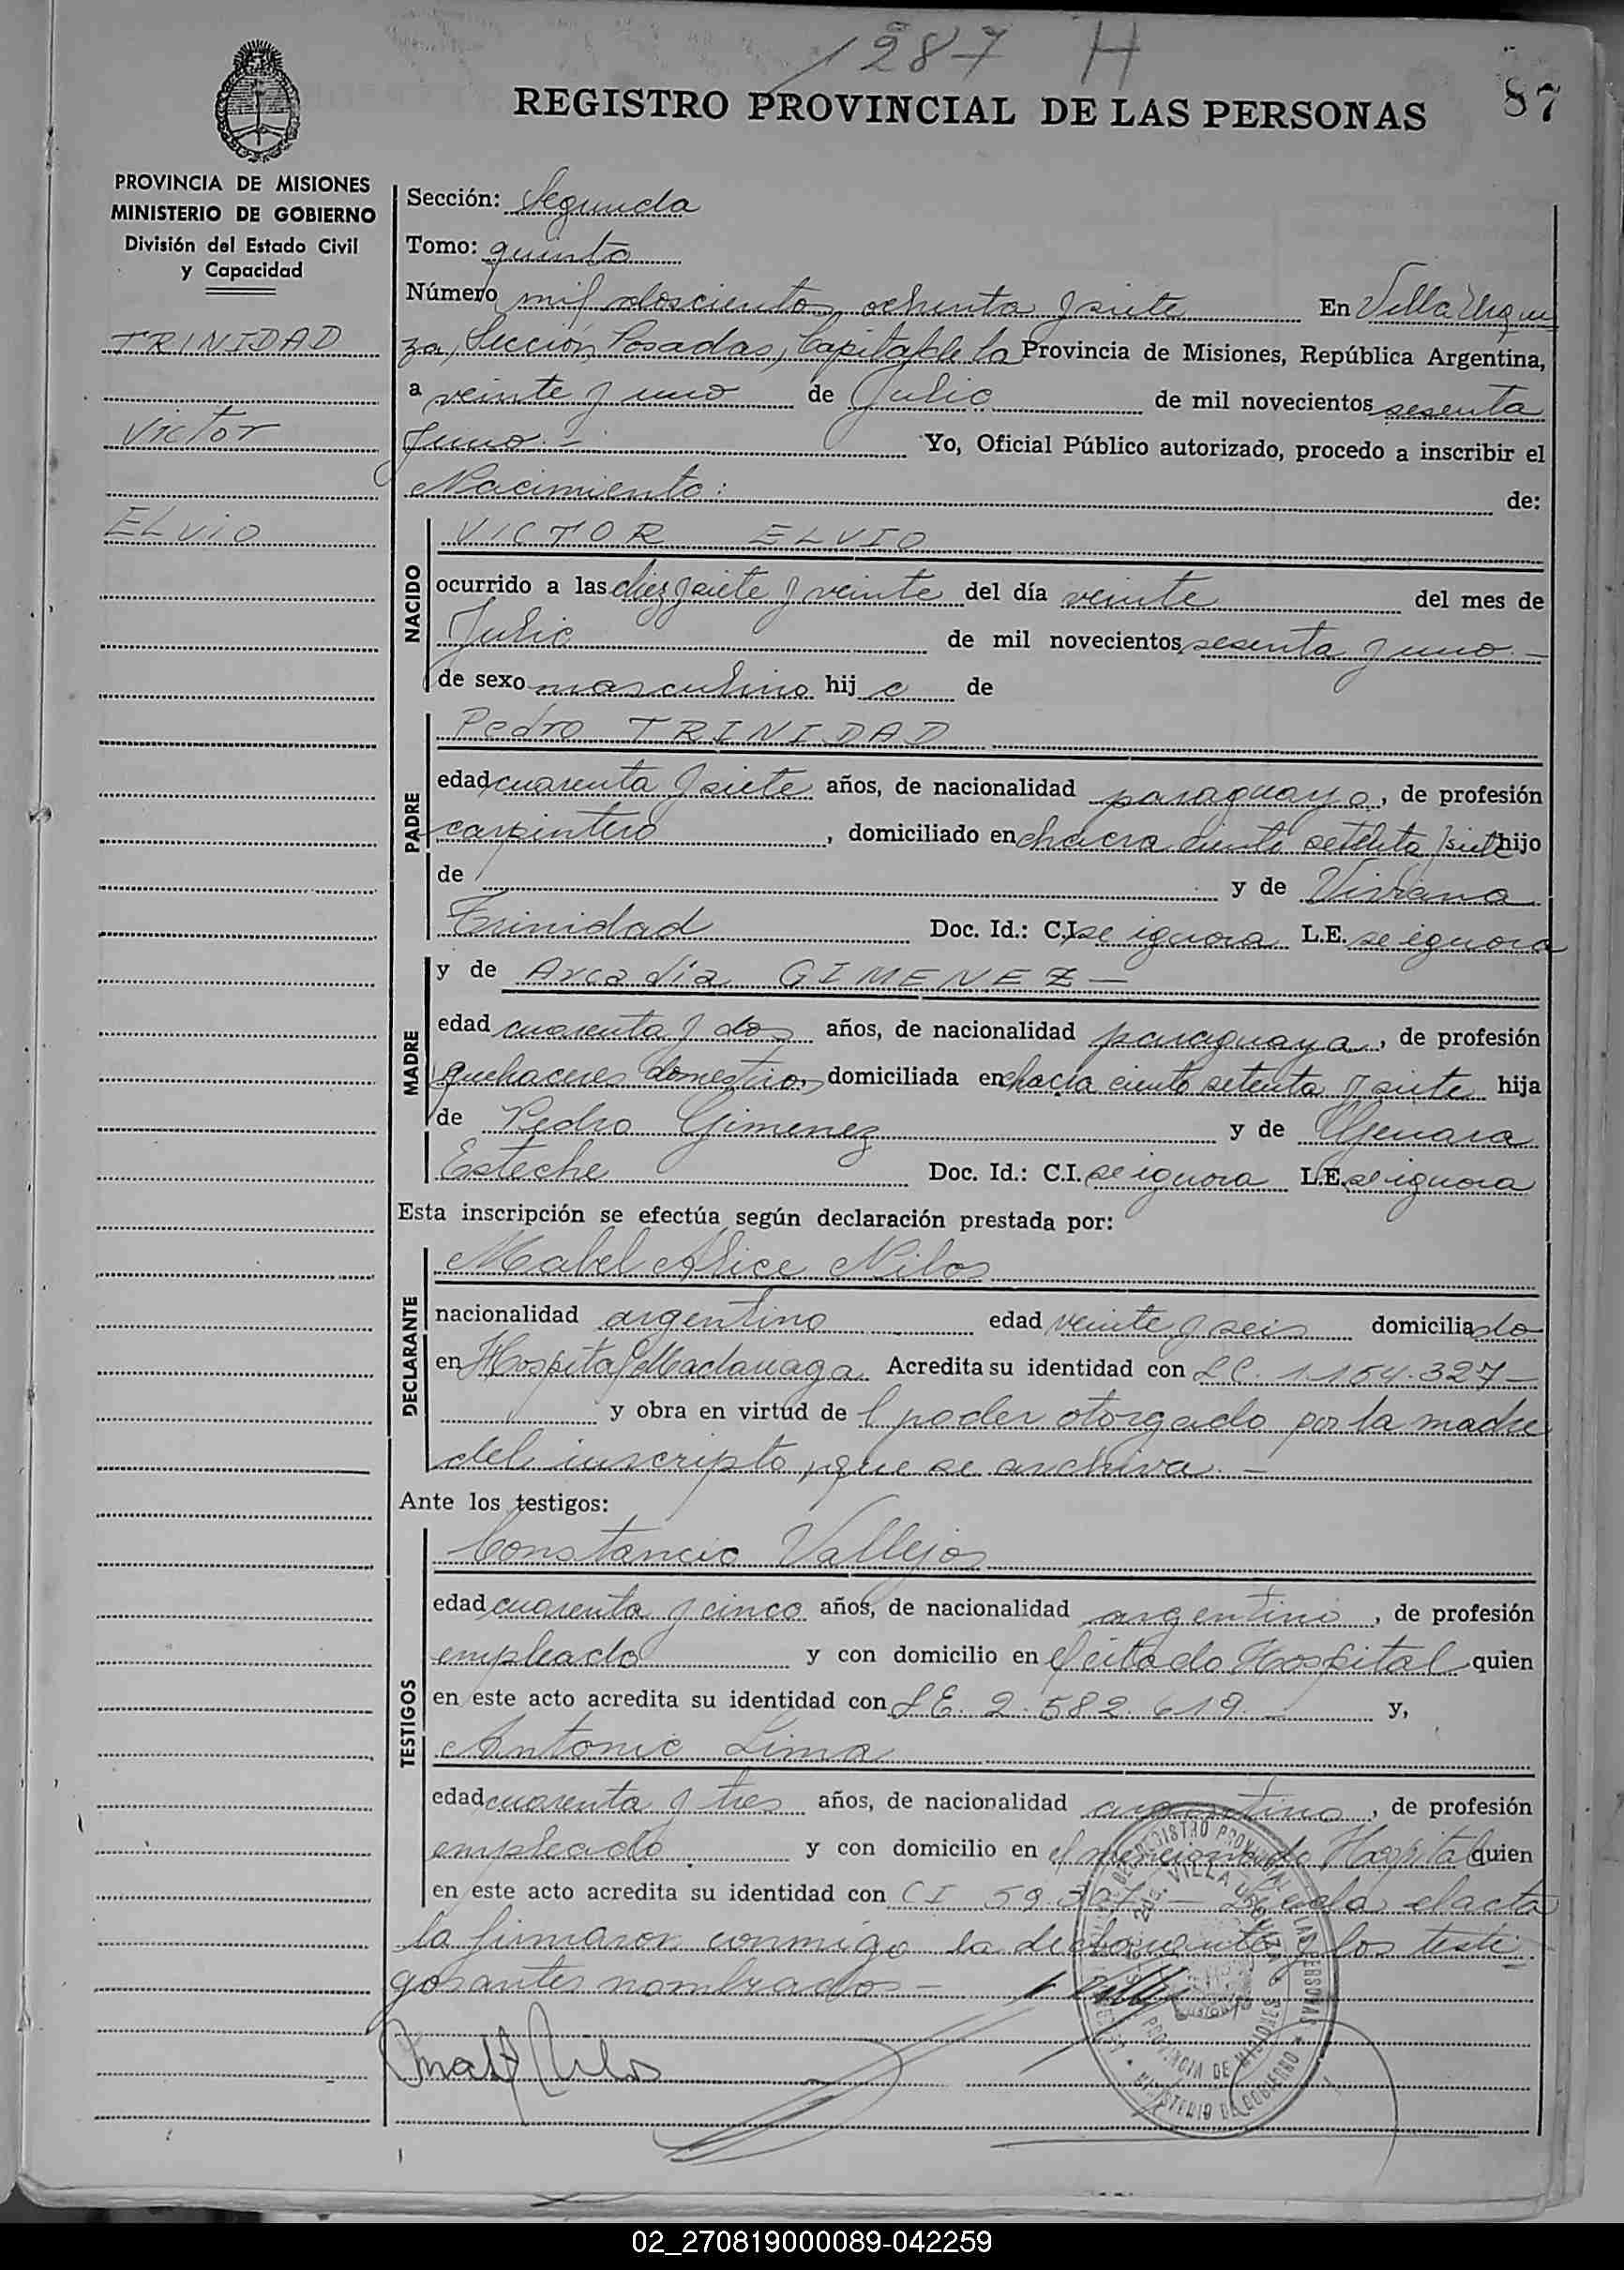 1287 H
REGISTRO PROVINCIAL DE LAS PERSONAS
87
PROVINCIA DE MISIONES
MINISTERIO DE GOBIERNO
División del Estado Civil
y Capacidad
TRINIDAD
Victor
ELVIO
Sección: Segunda
Tomo: quinto
Número mil doscientos ochenta y siete En Villa Urqui
za, Sección Posadas, Capital de la Provincia de Misiones, República Argentina,
a veinte y uno de Julio de mil novecientos sesenta
y uno.— Yo, Oficial Público autorizado, procedo a inscribir el
Nacimiento: de:
NACIDO
VICTOR ELVIO
ocurrido a las diez y siete y veinte del día veinte del mes de
Julio de mil novecientos sesenta y uno.—
de sexo masculino hijo de
PADRE
Pedro TRINIDAD
edad cuarenta y siete años, de nacionalidad paraguayo, de profesión
carpintero, domiciliado en chacra ciento setenta y siete hijo
de y de Viviana
Trinidad Doc. Id.: C.I. se ignora L.E. se ignora
MADRE
y de Arcadia GIMENEZ —
edad cuarenta y dos años, de nacionalidad paraguaya, de profesión
quehaceres domesticos, domiciliada en chacra ciento setenta y siete hija
de Pedro Gimenez y de Genara
Esteche Doc. Id.: C.I. se ignora L.E. se ignora
Esta inscripción se efectúa según declaración prestada por:
DECLARANTE
Mabel Alice Nilos
nacionalidad argentina edad veinte y seis domiciliado
en Hospital Madariaga Acredita su identidad con LC. 1.154.327—
y obra en virtud de l poder otorgado por la madre
del inscripto, que se archiva.—
Ante los testigos:
TESTIGOS
Constancio Vallejos
edad cuarenta y cinco años, de nacionalidad argentino, de profesión
empleado y con domicilio en el citado Hospital quien
en este acto acredita su identidad con LE. 2.582.619.— y,
Antonio Lima
edad cuarenta y tres años, de nacionalidad argentino, de profesión
empleado y con domicilio en el mencionado Hospital quien
en este acto acredita su identidad con CI 59.327.— Leida el acta
la firmaron conmigo la declarante y los testi
gos antes nombrados.—
REGISTRO PROVINCIAL DE LAS PERSONAS
VILLA URQUIZA
PROVINCIA DE MISIONES
MINISTERIO DE GOBIERNO
02_270819000089-042259